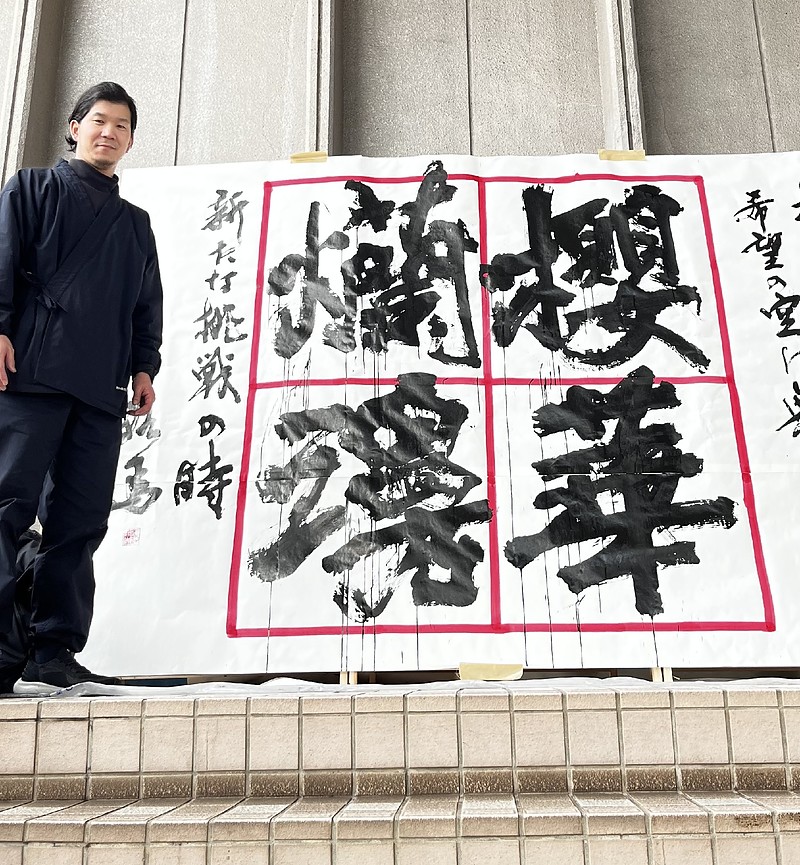 希望の空に
櫻華
爛漫
新たな挑戦の時